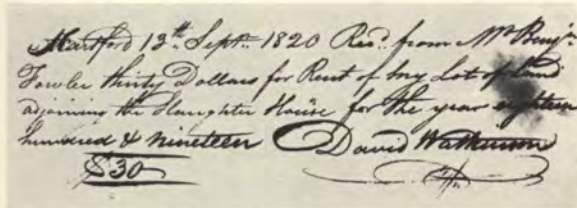 Hartford 13th. Sept. 1820 Recd. from Mr Benjn.
Fowler thirty Dollars for Rent of my Lot of land
adjoining the Slaughter House for the year eighteen
hundred & nineteen David Watkinson
$30